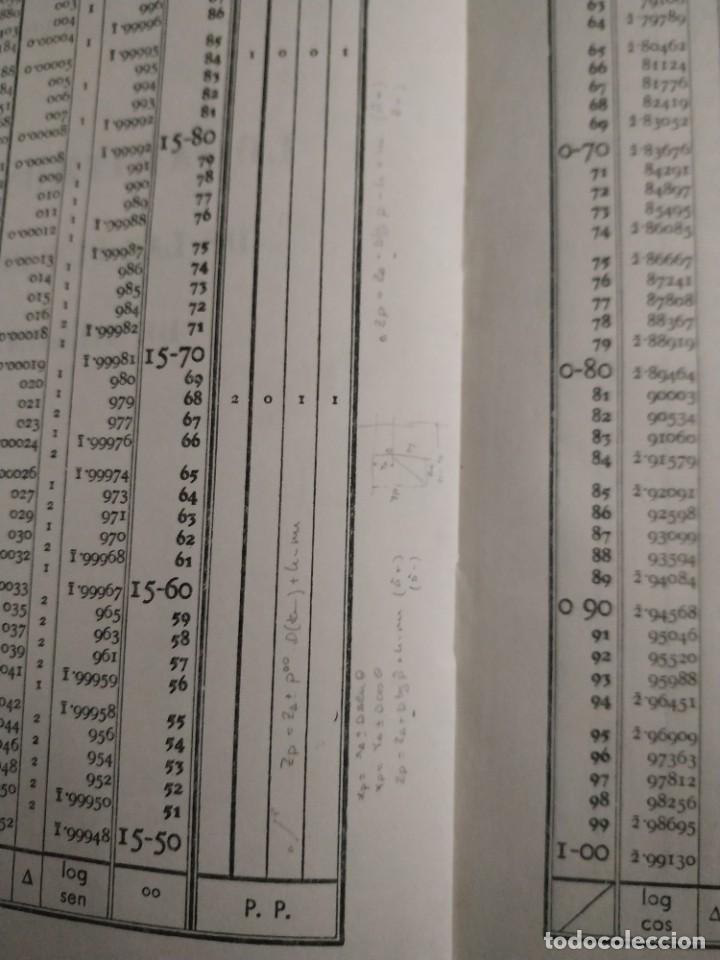 003 1 996 86
004 ī·99996
0·00005 1 ī·99995 85
995 84 1 0 0 1
005 994 83
006 1 993 82
007 ī·99992 81
0·00008 1 ī·99992 15-80
0·00008 1 991 79
009 990 78
010 989 77
011 1 ī·99988 76
0·00012
0·00013 1 ī·99987 75
014 986 74
015 1 985 73
016 984 72
0·00018 2 ī·99982 71
0·00019 1 ī·99981 15-70
020 980 69
021 1 979 68 2 0 1 1
023 2 977 67
00024 1 ī·99976 66
00026 2 ī·99974 65
027 1 973 64
029 2 971 63
030 1 970 62
0032 2 ī·99968 61
0033 1 ī·99967 15-60
035 2 965 59
037 2 963 58
039 2 961 57
041 2 ī·99959 56
042 1 ī·99958 55
044 2 956 54
046 2 954 53
048 2 952 52
050 2 ī·99950 51
052 2 ī·99948 15-50
Δ log sen 00 P. P.
63
64 2̄·79789
65 2̄·80462
66 81124
67 81776
68 82419
69 2̄·83052
0-70 2̄·83676
71 84291
72 84897
73 85495
74 2̄·86085
75 2̄·86667
76 87241
77 87808
78 88367
79 2̄·88919
0-80 2̄·89464
81 90003
82 90534
83 91060
84 2̄·91579
85 2̄·92091
86 92598
87 93099
88 93594
89 2̄·94084
0 90 2̄·94568
91 95046
92 95520
93 95988
94 2̄·96451
95 2̄·96909
96 97363
97 97812
98 98256
99 2̄·98695
1-00 2̄·99130
log cos Δ
todocoleccion
todocoleccion.net